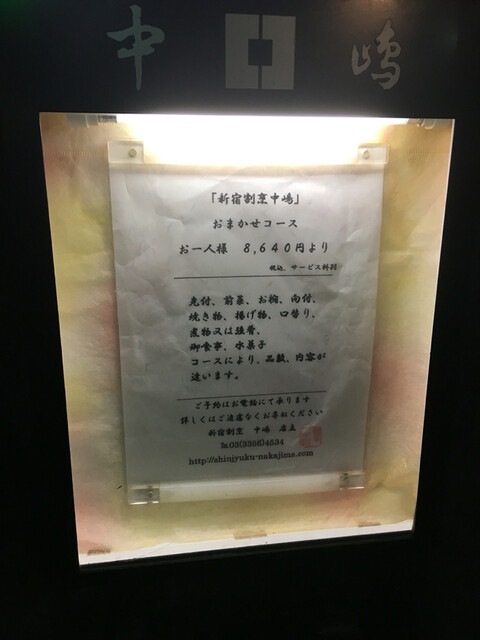 中嶋
「新宿割烹中嶋」
おまかせコース
お一人様 8,640円より
税込、サービス料別
先付、前菜、お椀、向付、
焼き物、揚げ物、口替り、
煮物又は強肴、
御食事、水菓子
コースにより、品数、内容が
違います。
ご予約はお電話にて承ります
詳しくはご遠慮なくお尋ねください
新宿割烹 中嶋 店主
℡03(3356)4534
http://shinjyuku-nakajima.com